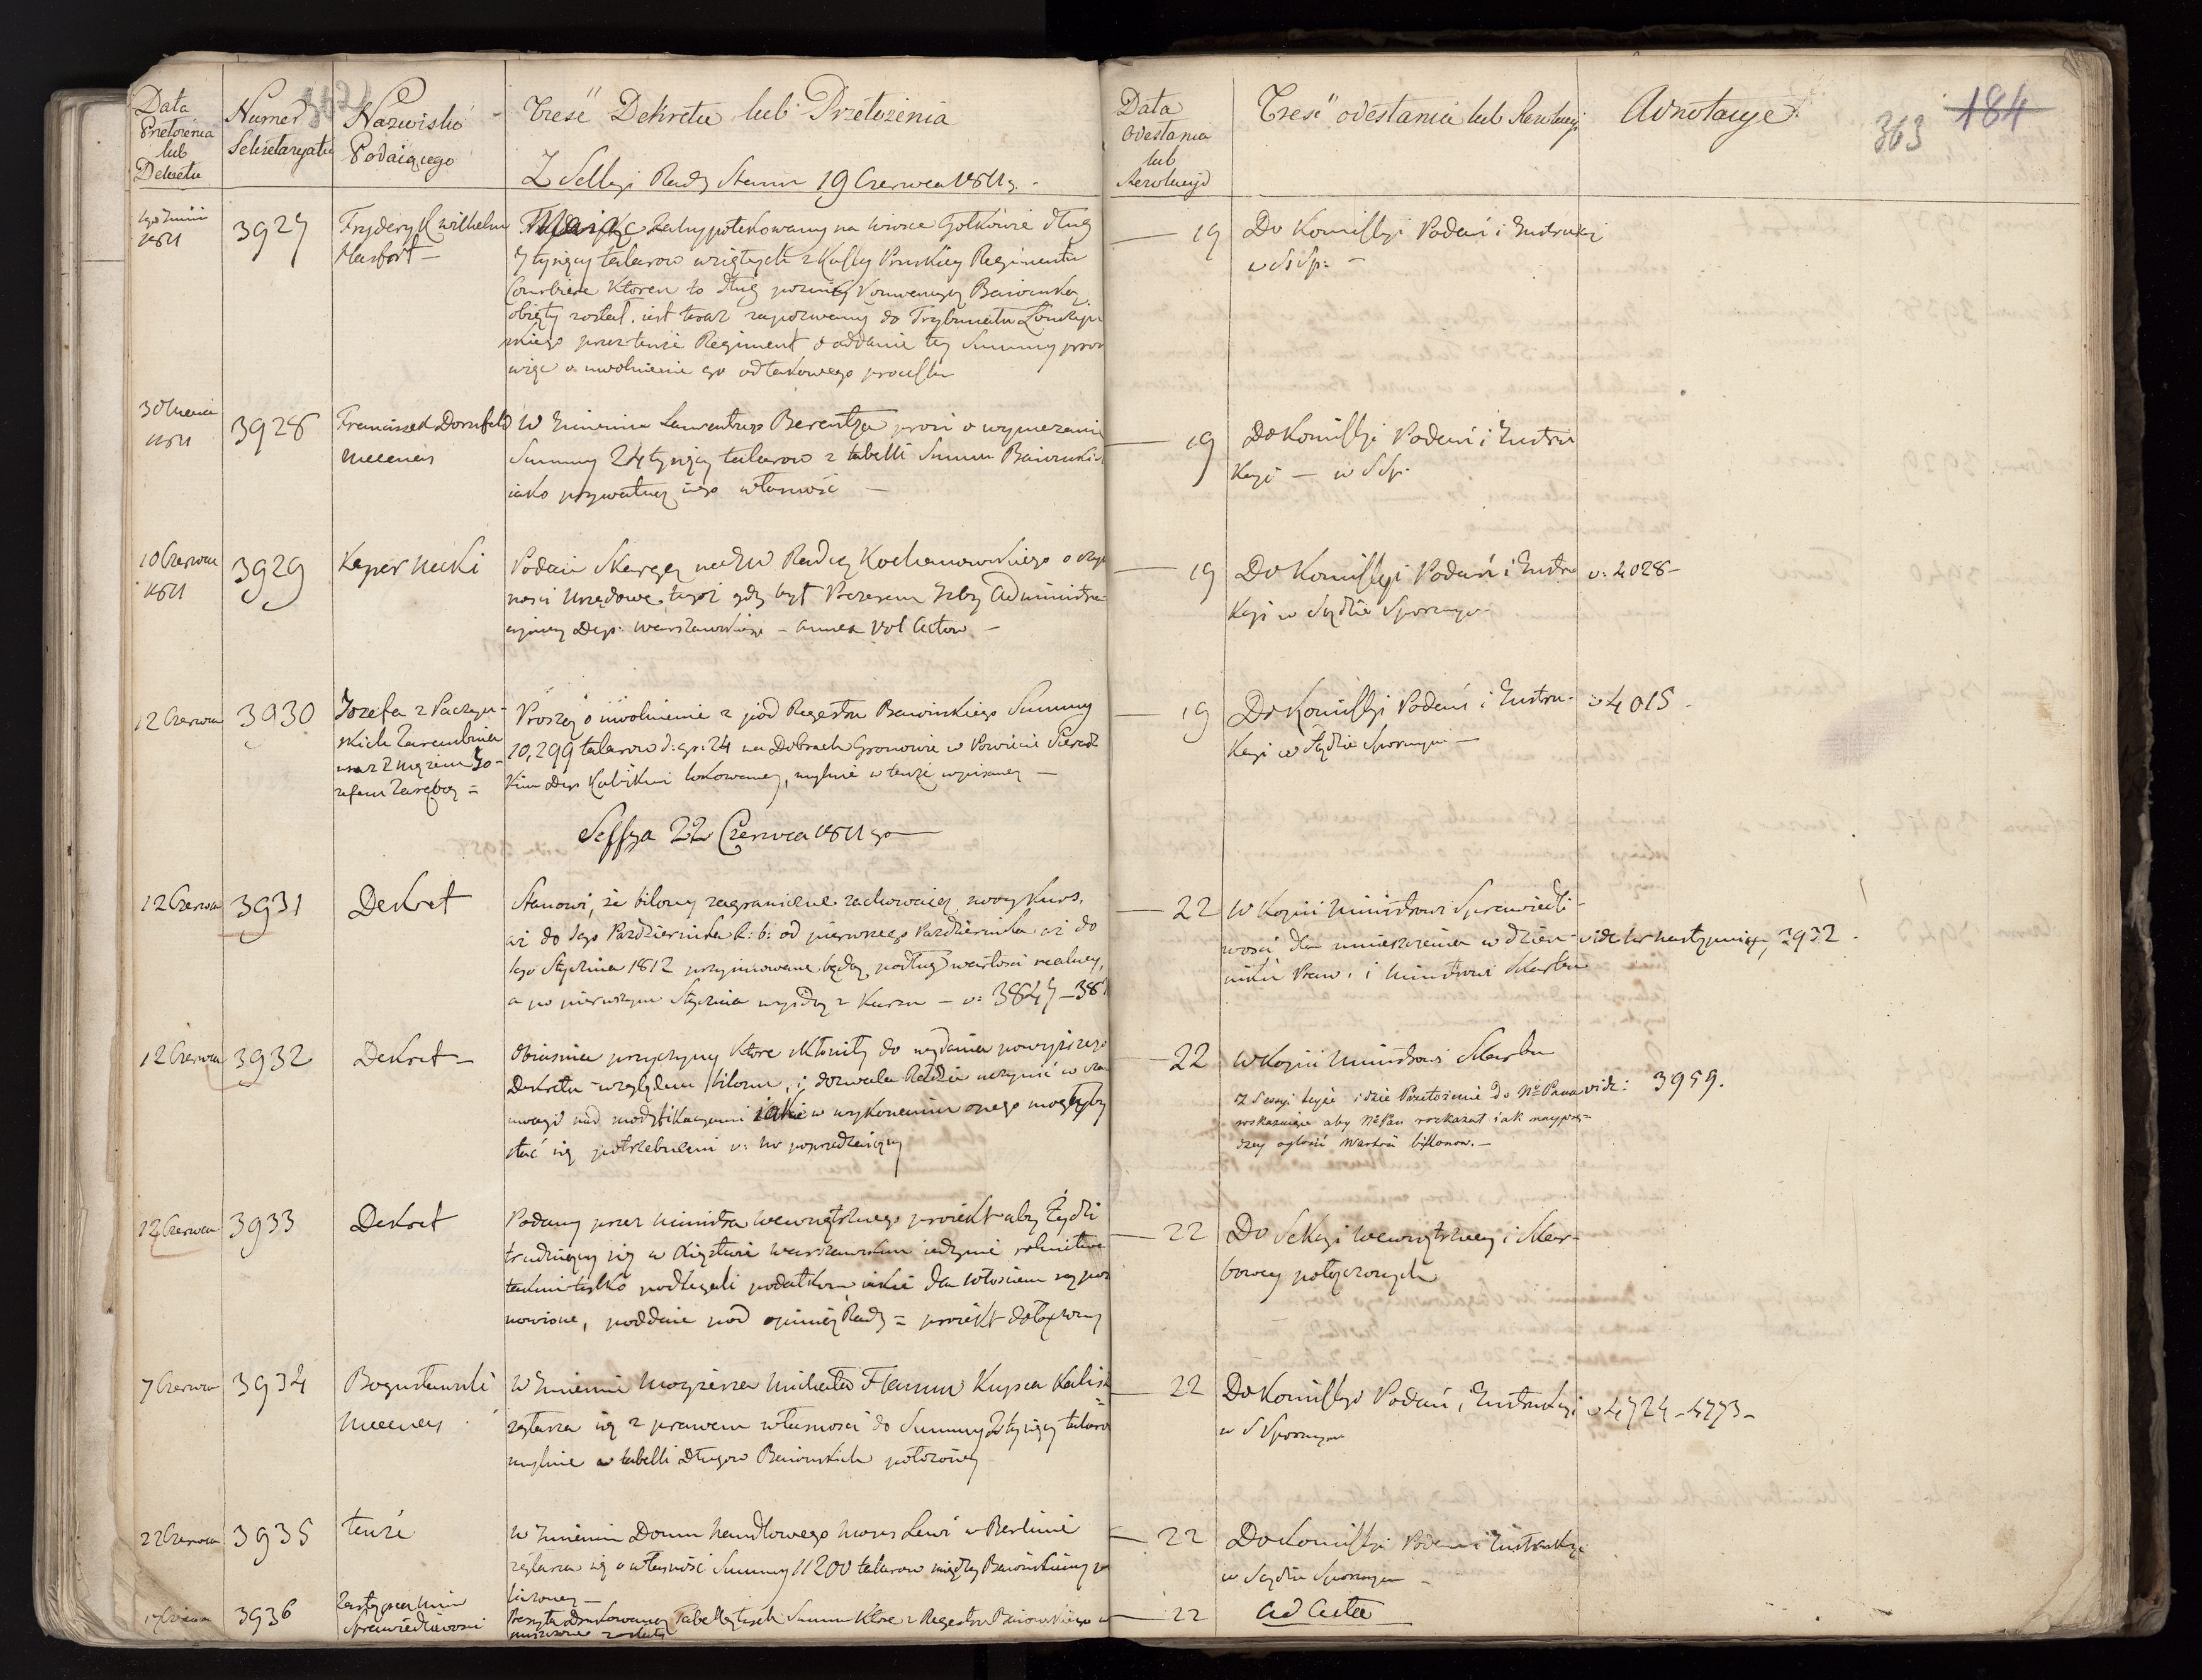 Data
Przełożenia
lub
Dekretu
Numer
Sekretaryatu
Nazwisko
Podaiącego
Treść Dekretu lub Przełożenia
Z Sessyi Rady Stanu 19 Czerwca 1811 g.
Data
Odesłania
lub
Rezolucyi
Treść odesłania lub Rezolucyi
Adnotacye
363 184
1811
3927
Fryderyk Wilhelm
Hasfort —
zahypotekowany na wiosce Gołkowie dług
7 tysięcy talarow wziętych z Kassy Pruskiey Regimentu
Courbiere ktoren to dług Konwencyą Baionską
obięty został, iest teraz zapozwany do Trybunału
przez tenże Regiment o oddanie tey Summy
więc o uwolnienie go od takowego processu
— 19
Do Komissyi Podań i Instrukcyi
w S Sp: —
1811
3928
Franciszek Dornfeld
Mecenas
W Imieniu Berentza prosi o wymazanie
Summy 24 tysięcy talarow z tabelli Summ Baionskich
iako prywatney iego własność —
— 19
Do Komissyi Podań i Instru
kcyi — w S Sp.
10 Czerwca
1811
3929
Kasper Mecki
Podaie Skargę na JW Radcę Kochanowskiego o
ności Urzędowe tegoż gdy był Prezesem Izby Administra
cyiney Dep: Warszawskiego — annex vol Actow —
— 19
Do Komissyi Podań i Instru
kcyi w Sądzie Spornym
v: 4028 —
12 Czerwca
3930
Jozefa z
skich Zarembina
wraz z mężem Jo-
zefem Zarębą =
Proszą o uwolnienie z pod Regestru Baionskiego Summy
10,299 talarow d: gr: 24 na Dobrach Gronowie w Powiecie Sieradz
kim Dep Kaliskim lokowaney, mylnie w tenże wpisaney —
— 19
Do Komissyi Podań i Instru-
kcyi w Sądzie Spornym —
v: 4015
Sessya 22 Czerwca 1811 go —
12 Czerwca
3931
Dekret
Stanowi, że bilony zagraniczne zachowaią swoy kurs,
aż do 1go Października R: b: od pierwszego Października aż do
1go Stycznia 1812 przyimowane będą podług wartości realney,
a po pierwszym Stycznia wyidą z Kursu — v: 3847 —
— 22
W Kopii Ministrowi Sprawiedli-
wości dla umieszczenia w dzien-
niku Praw: i Ministrowi Skarbu
vide Nr następuiący 3932.
12 Czerwca
3932
Dekret —
Obiaśnia przyczyny ktore skłoniły do wydania powyższego
Dekretu względem bilonu, i dozwala Radzie uczynić w
uwagi nad modyfikacyami iakie w wykonaniu onego mogłyby
stać się potrzebnemi v: Nr poprzedzaiący
— 22
W Kopii Ministrowi Skarbu
z Sessyi teyże idzie Przełożenie do Nº Pana
aby Nº Pan rozkazał iak nayprę-
dzey ogłosić Wartość billonow. —
vide: 3959.
12 Czerwca
3933
Dekret
Podany przez Ministra Wewnętrznego proiekt aby Żydzi
trudniący się w Xięstwie Warszawskim iedynie rolnictwem
takim tylko podlegali podatkom iakie dla włościan są
nowione, poddaie pod opinią Rady = proiekt dołączony
— 22
Do Sekcyi Wewnętrzney i Skar-
bowey połączonych
7 Czerwca
3934
Bogusławski
Mecenas
W Imieniu Mayżesza Michała Flamm Kupca Kalisk
zgłasza się z prawem własności do Summy tysięcy talarow
mylnie w tabelli Długow Baionskich położoney
— 22
Do Komissyi Podań i Instrukcyi
w S Spornym
v: 4724 — 4773 —
22 Czerwca
3935
tenże
W Imieniu Domu handlowego Moses Lewi w Berlinie
zgłasza się o własność Summy 11200 talarow między Baionskiemi
liczoney —
— 22
Do Komissyi Podań i Instrukcyi
w Sądzie Spornym —
3936
Zastępca Min
Sprawiedliwości
Przesyła drukowaną Tabellę tych Summ ktore z Regestru Baionskiego
zostały
— 22
Ad Acta